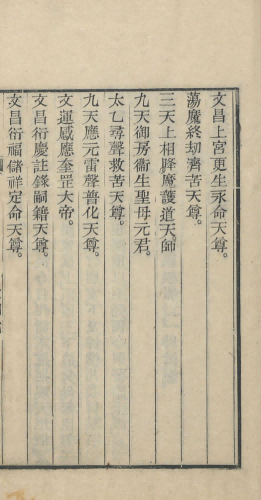 文昌上宮更生永命天尊。
蕩魔終劫濟苦天尊。
三天上相降魔護道天師
九天御房衛生聖母元君。
太乙尋聲救苦天尊。
九天應元雷聲普化天尊。
文運感應奎罡大帝。
文昌衍慶註錄嗣籍天尊。
文昌衍福儲祥定命天尊。